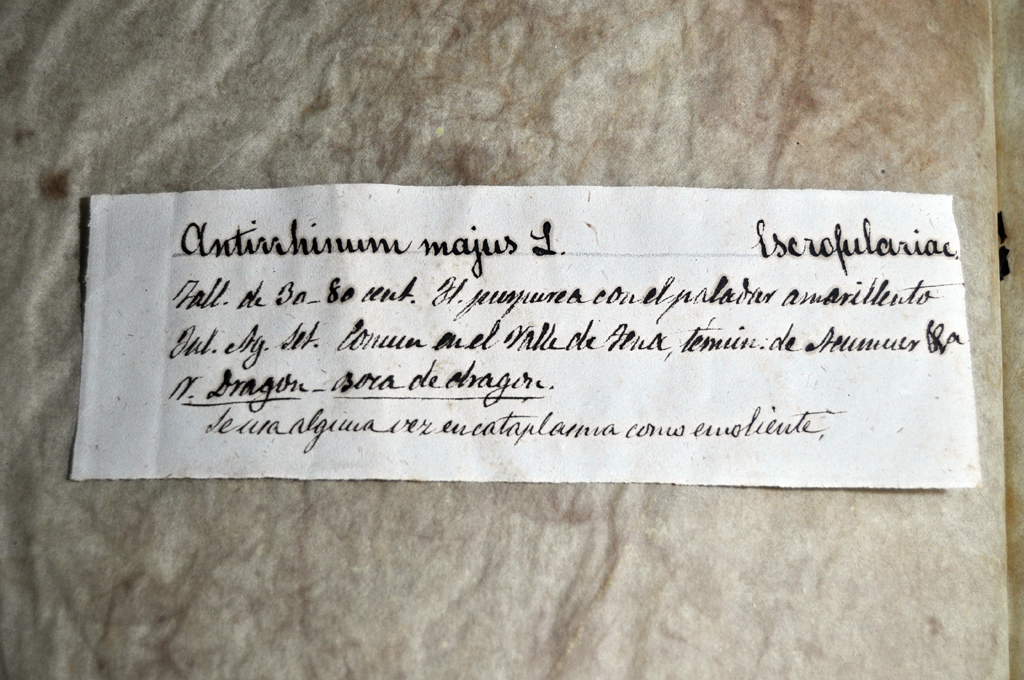 Antirrhinum majus L. Escrofulariac.
Tall. de 30-80 cent. Fl. purpurea con el paladar amarillento
Jul. Ag. Set. Comun en el Valle de Tena, témin. de
V. Dragon - Boca de dragon.
Se usa alguna vez en cataplasma como emoliente.